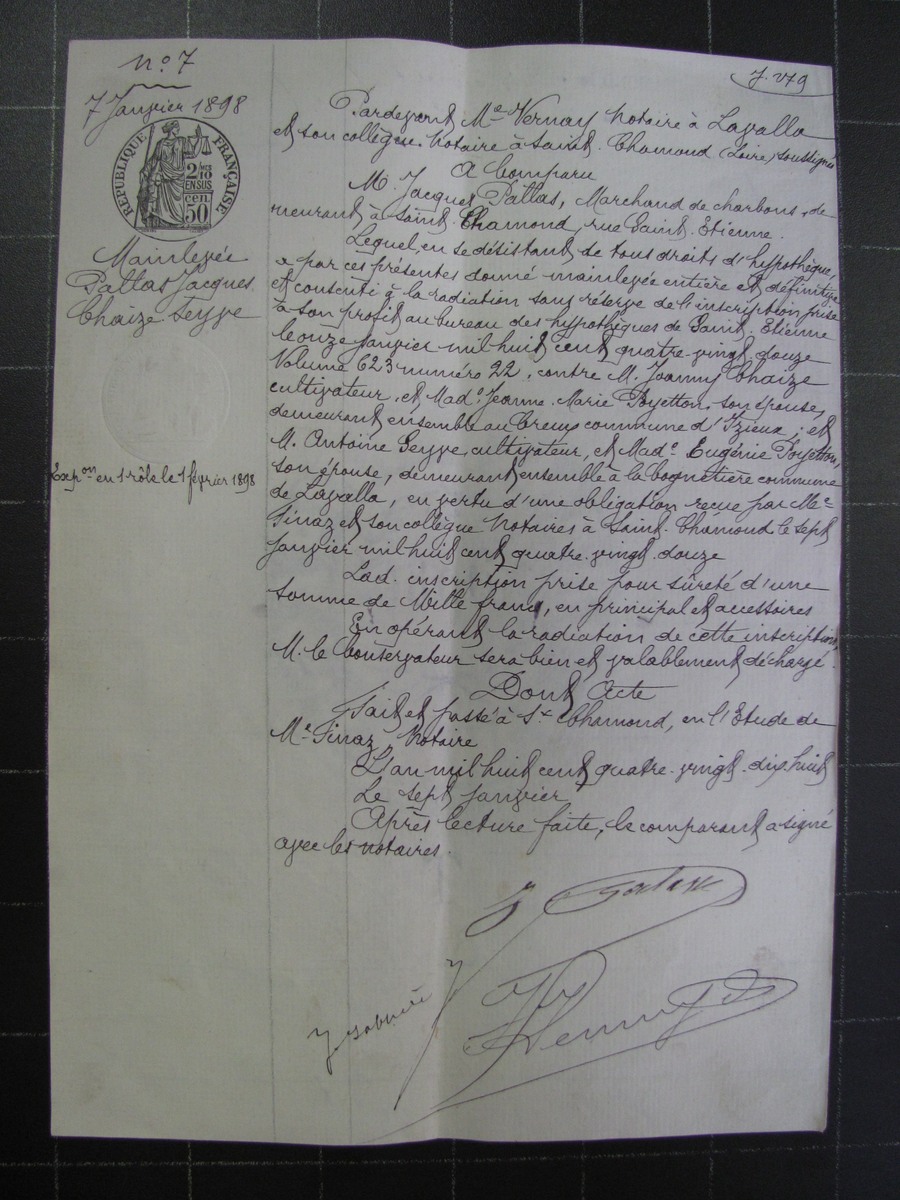 n° 7
7 Janvier 1898
RÉPUBLIQUE FRANÇAISE
2/10 EN SUS
50 cen.
Mainlevée
Pallas Jacques
Chaize-Seyve
Exp.on en 1 rôle le 1 février 1898
Pardevant Me Vernay Notaire à Lavalla
et son collègue Notaire à Saint-Chamond (Loire) soussignés
A Comparu
M. Jacques Pallas, Marchand de charbons, de-
meurant à Saint Chamond, rue Saint-Etienne.
Lequel, en se désistant de tous droits d'hypothèque,
a par ces présentes donné mainlevée entière et définitive
et consenti à la radiation sans réserve de l'inscription prise
à son profit au bureau des hypothèques de Saint-Etienne
le onze Janvier mil huit cent quatre-vingt-douze
Volume 623 numéro 22, contre M. Joanny Chaize
cultivateur, et Made Jeanne-Marie Poyetton, son épouse,
demeurant ensemble au Creux commune d'Izieux; et
M. Antoine Seyve, cultivateur, et Made Eugénie Poyetton,
son épouse, demeurant ensemble à la bognetière commune
de Lavalla, en vertu d'une obligation reçue par Me
Finaz et son collègue Notaires à Saint-Chamond le sept
Janvier mil huit cent quatre-vingt-douze
Lad. inscription prise pour sûreté d'une
somme de Mille francs, en principal et accessoires
En opérant la radiation de cette inscription,
M. le Conservateur sera bien et valablement déchargé.
Dont Acte
Fait et passé à St-Chamond, en l'Etude de
Me Finaz, Notaire
L'an mil huit cent quatre-vingt-dix-huit
Le sept Janvier
Après lecture faite, le comparant a signé
avec les notaires.